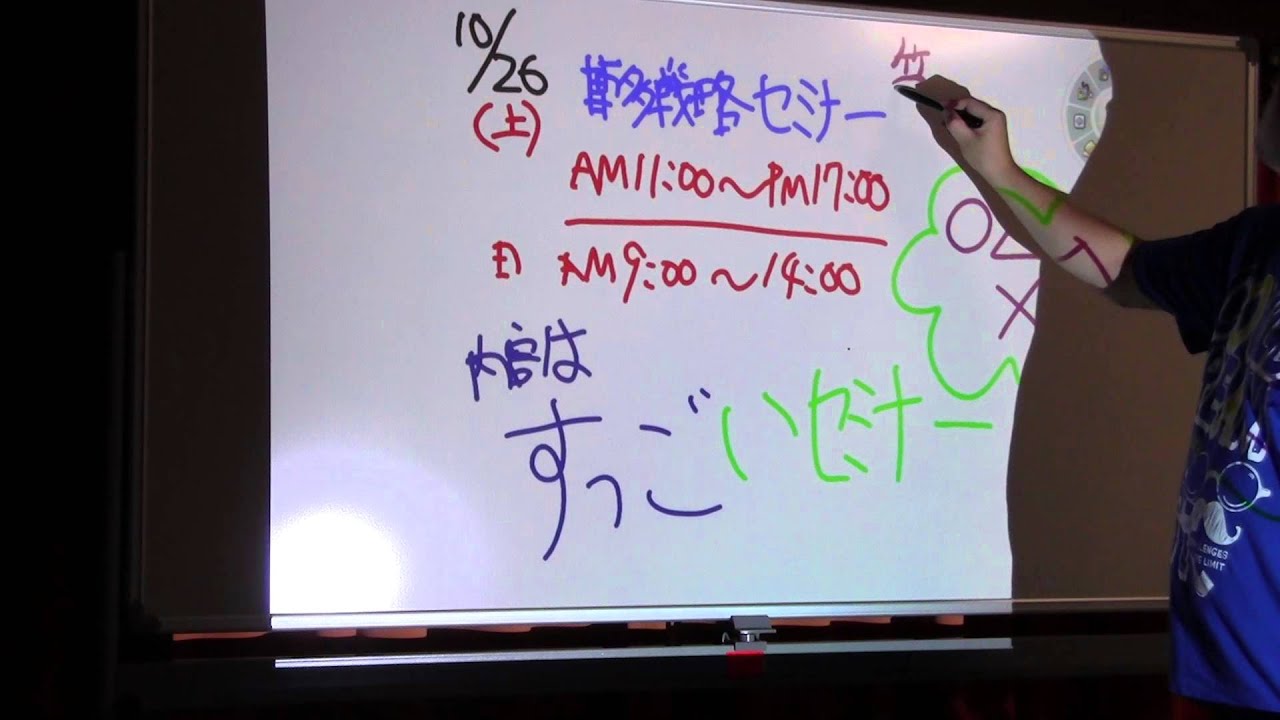 10/26
(土)
戦略セミナー
AM11:00～PM17:00
日 AM9:00～14:00
内容は
すっごいセミナー
竹
○
×
LLENGES
LIMIT